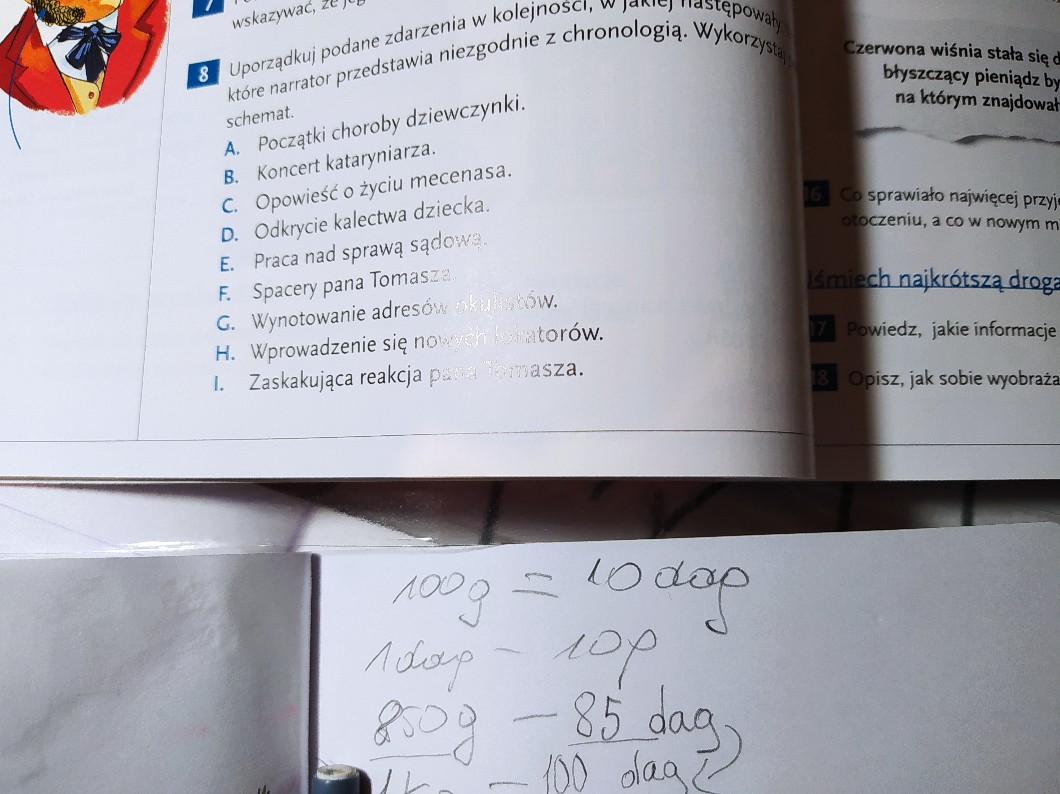 7
wskazywać, że jeg
8 Uporządkuj podane zdarzenia w kolejności, w jakiej następowały
które narrator przedstawia niezgodnie z chronologią. Wykorzystaj
schemat.
A. Początki choroby dziewczynki.
B. Koncert kataryniarza.
C. Opowieść o życiu mecenasa.
D. Odkrycie kalectwa dziecka.
E. Praca nad sprawą sądową.
F. Spacery pana Tomasza.
G. Wynotowanie adresów okulistów.
H. Wprowadzenie się nowych lokatorów.
I. Zaskakująca reakcja pana Tomasza.
Czerwona wiśnia stała się d
błyszczący pieniądz by
na którym znajdował
16 Co sprawiało najwięcej przyj
otoczeniu, a co w nowym m
Uśmiech najkrótszą drogą
17 Powiedz, jakie informacje
18 Opisz, jak sobie wyobraża
100g = 10 dag
1 dag - 10g
850g - 85 dag
- 100 dag